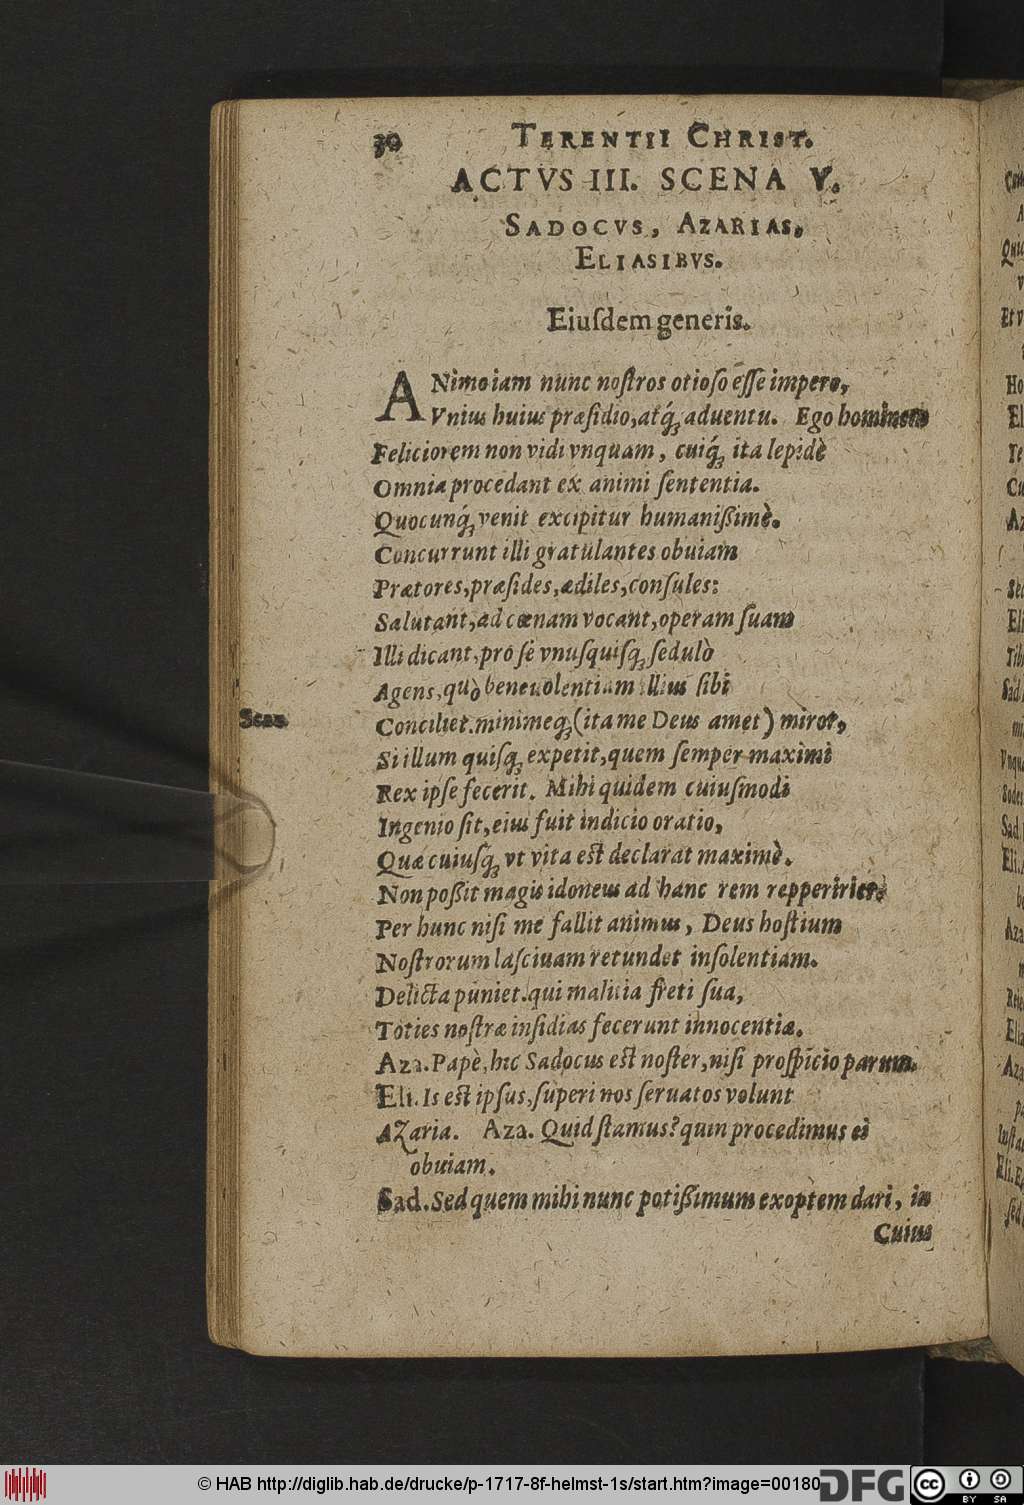 30 TERENTII CHRIST.
ACTVS III. SCENA V.
SADOCVS, AZARIAS,
ELIASIBVS.
Eiuſdem generis.
ANimo iam nunc noſtros otioſo eſſe impero,
Vnius huius præſidio, atq́ʒ aduentu. Ego hominem
Feliciorem non vidi vnquam, cuiq́ʒ ita lepidè
Omnia procedant ex animi ſententia.
Quocunq́ʒ venit excipitur humanißimè.
Concurrunt illi gratulantes obuiam
Prætores, præſides, ædiles, conſules:
Salutant, ad cœnam vocant, operam ſuam
Illi dicant, pro ſe vnuſquiſqʒ ſedulò
Agens, quò beneuolentiam illius ſibi
Conciliet. minimeqʒ (ita me Deus amet) miror,
Si illum quiſqʒ expetit, quem ſemper maximi
Rex ipſe fecerit. Mihi quidem cuiuſmodi
Ingenio ſit, eius fuit indicio oratio,
Quæ cuiuſq́ʒ vt vita eſt declarat maximè.
Non poßit magis idoneus ad hanc rem repperirier.
Per hunc niſi me fallit animus, Deus hoſtium
Noſtrorum laſciuam retundet inſolentiam.
Delicta puniet. qui malitia freti ſua,
Toties noſtræ inſidias fecerunt innocentiæ.
Aza. Papè, hic Sadocus eſt noſter, niſi proſpicio parum.
Eli. Is eſt ipſus, ſuperi nos ſeruatos volunt
Azaria. Aza. Quid ſtamus? quin procedimus ei
obuiam.
Sad. Sed quem mihi nunc potißimum exoptem dari, in
Cuius
© HAB http://diglib.hab.de/drucke/p-1717-8f-helmst-1s/start.htm?image=00180
DFG
cc BY SA